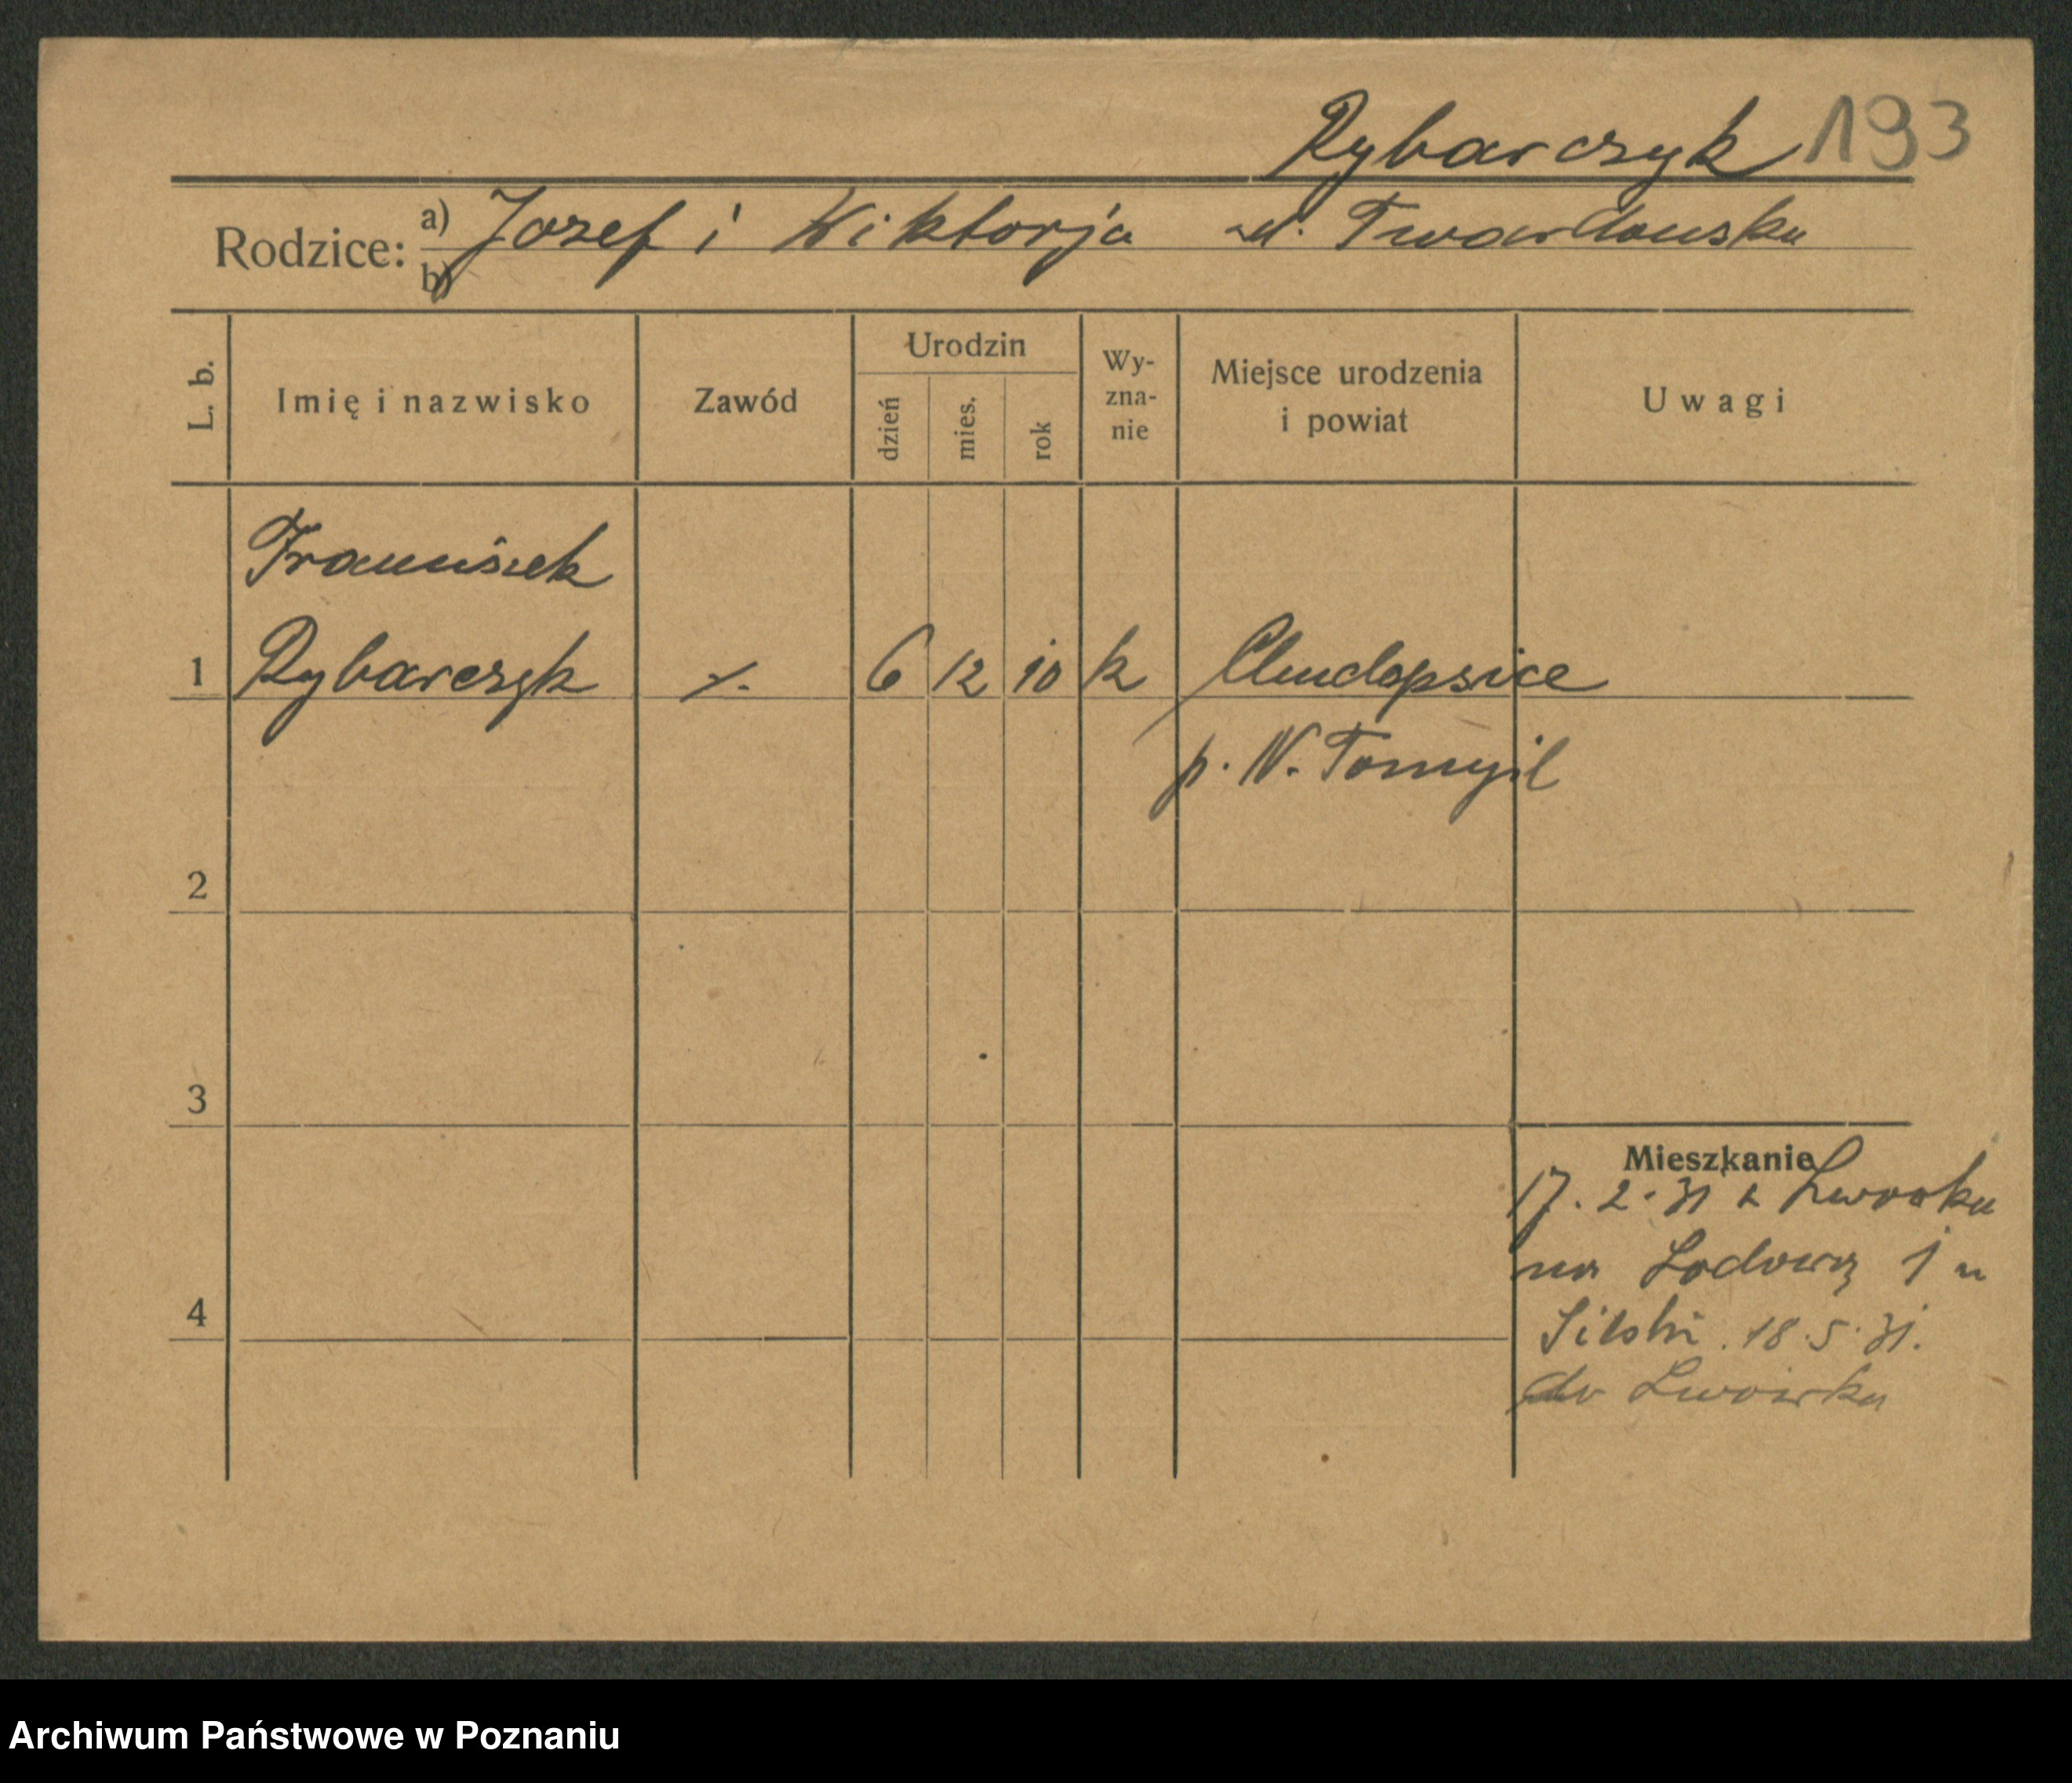 Rybarczyk 193
Rodzice: a) Jozef i Wiktorja Twardowska
b)
L. b.
Imię i nazwisko
Zawód
Urodzin
dzień
mies.
rok
Wy-
zna-
nie
Miejsce urodzenia
i powiat
Uwagi
Franciszek
1 Rybarczyk 6 12 10 k Chudopsice
p. N. Tomyśl
2
3
Mieszkanie
17. 2. 31 z Lwowka
na Lodową 1 u
4
18. 5. 31.
do Lwówka
Archiwum Państwowe w Poznaniu